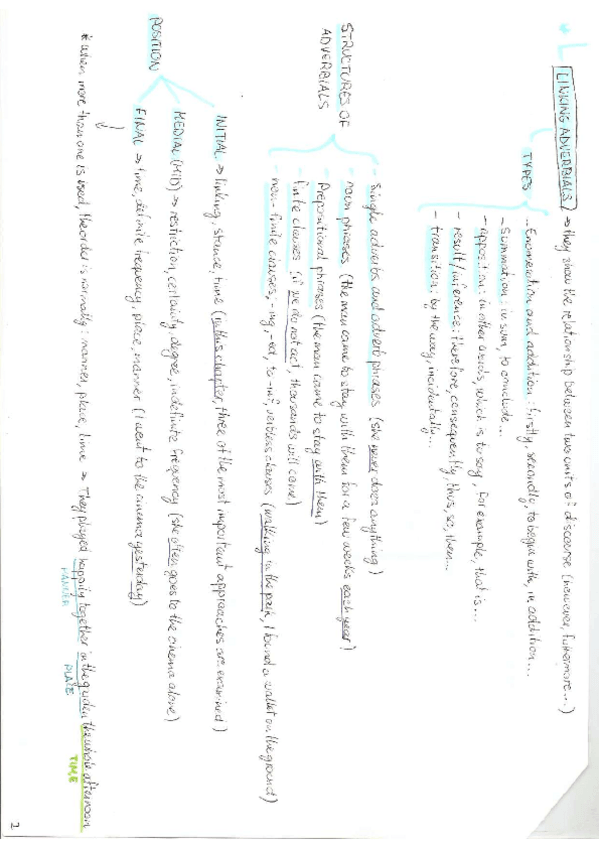 LINKING ADVERBIALS → they show the relationship between two units of discourse (however, futhermore...)
TYPES
- Enumeration and addition: firstly, secondly, to begin with, in addition...
- Summation: in sum, to conclude...
- apposition: in other words, which is to say, for example, that is...
- result/inference: therefore, consequently, thus, so, then...
- transition: by the way, incidentally...
STRUCTURES OF
ADVERBIALS
- Single adverbs and adverb phrases (she never does anything)
- noun phrases (the men came to stay with them for a few weeks each year)
- Prepositional phrases (the men came to stay with them)
- finite clauses (if we do not act, thousands will come)
- non-finite clauses, -ing, -ed, to-inf, verbless clauses (walking in the park, I found a wallet on the ground)
POSITION
INITIAL → linking, stance, time (in this chapter, three of the most important approaches are examined)
MEDIAL (MID) → restriction, certainty, degree, indefinite frequency (she often goes to the cinema alone)
FINAL → time, definite frequency, place, manner (I went to the cinema yesterday)
* when more than one is used, the order is normally: manner, place, time → They played happily together in the garden the whole afternoon
MANNER PLACE TIME
2